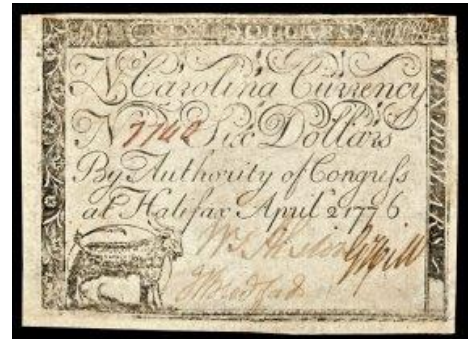 SIX DOLLARS
N Carolina Currency
N 7740 Six Dollars
By Authority of Congress
at Halifax April 2 1776
SIX DOLLARS